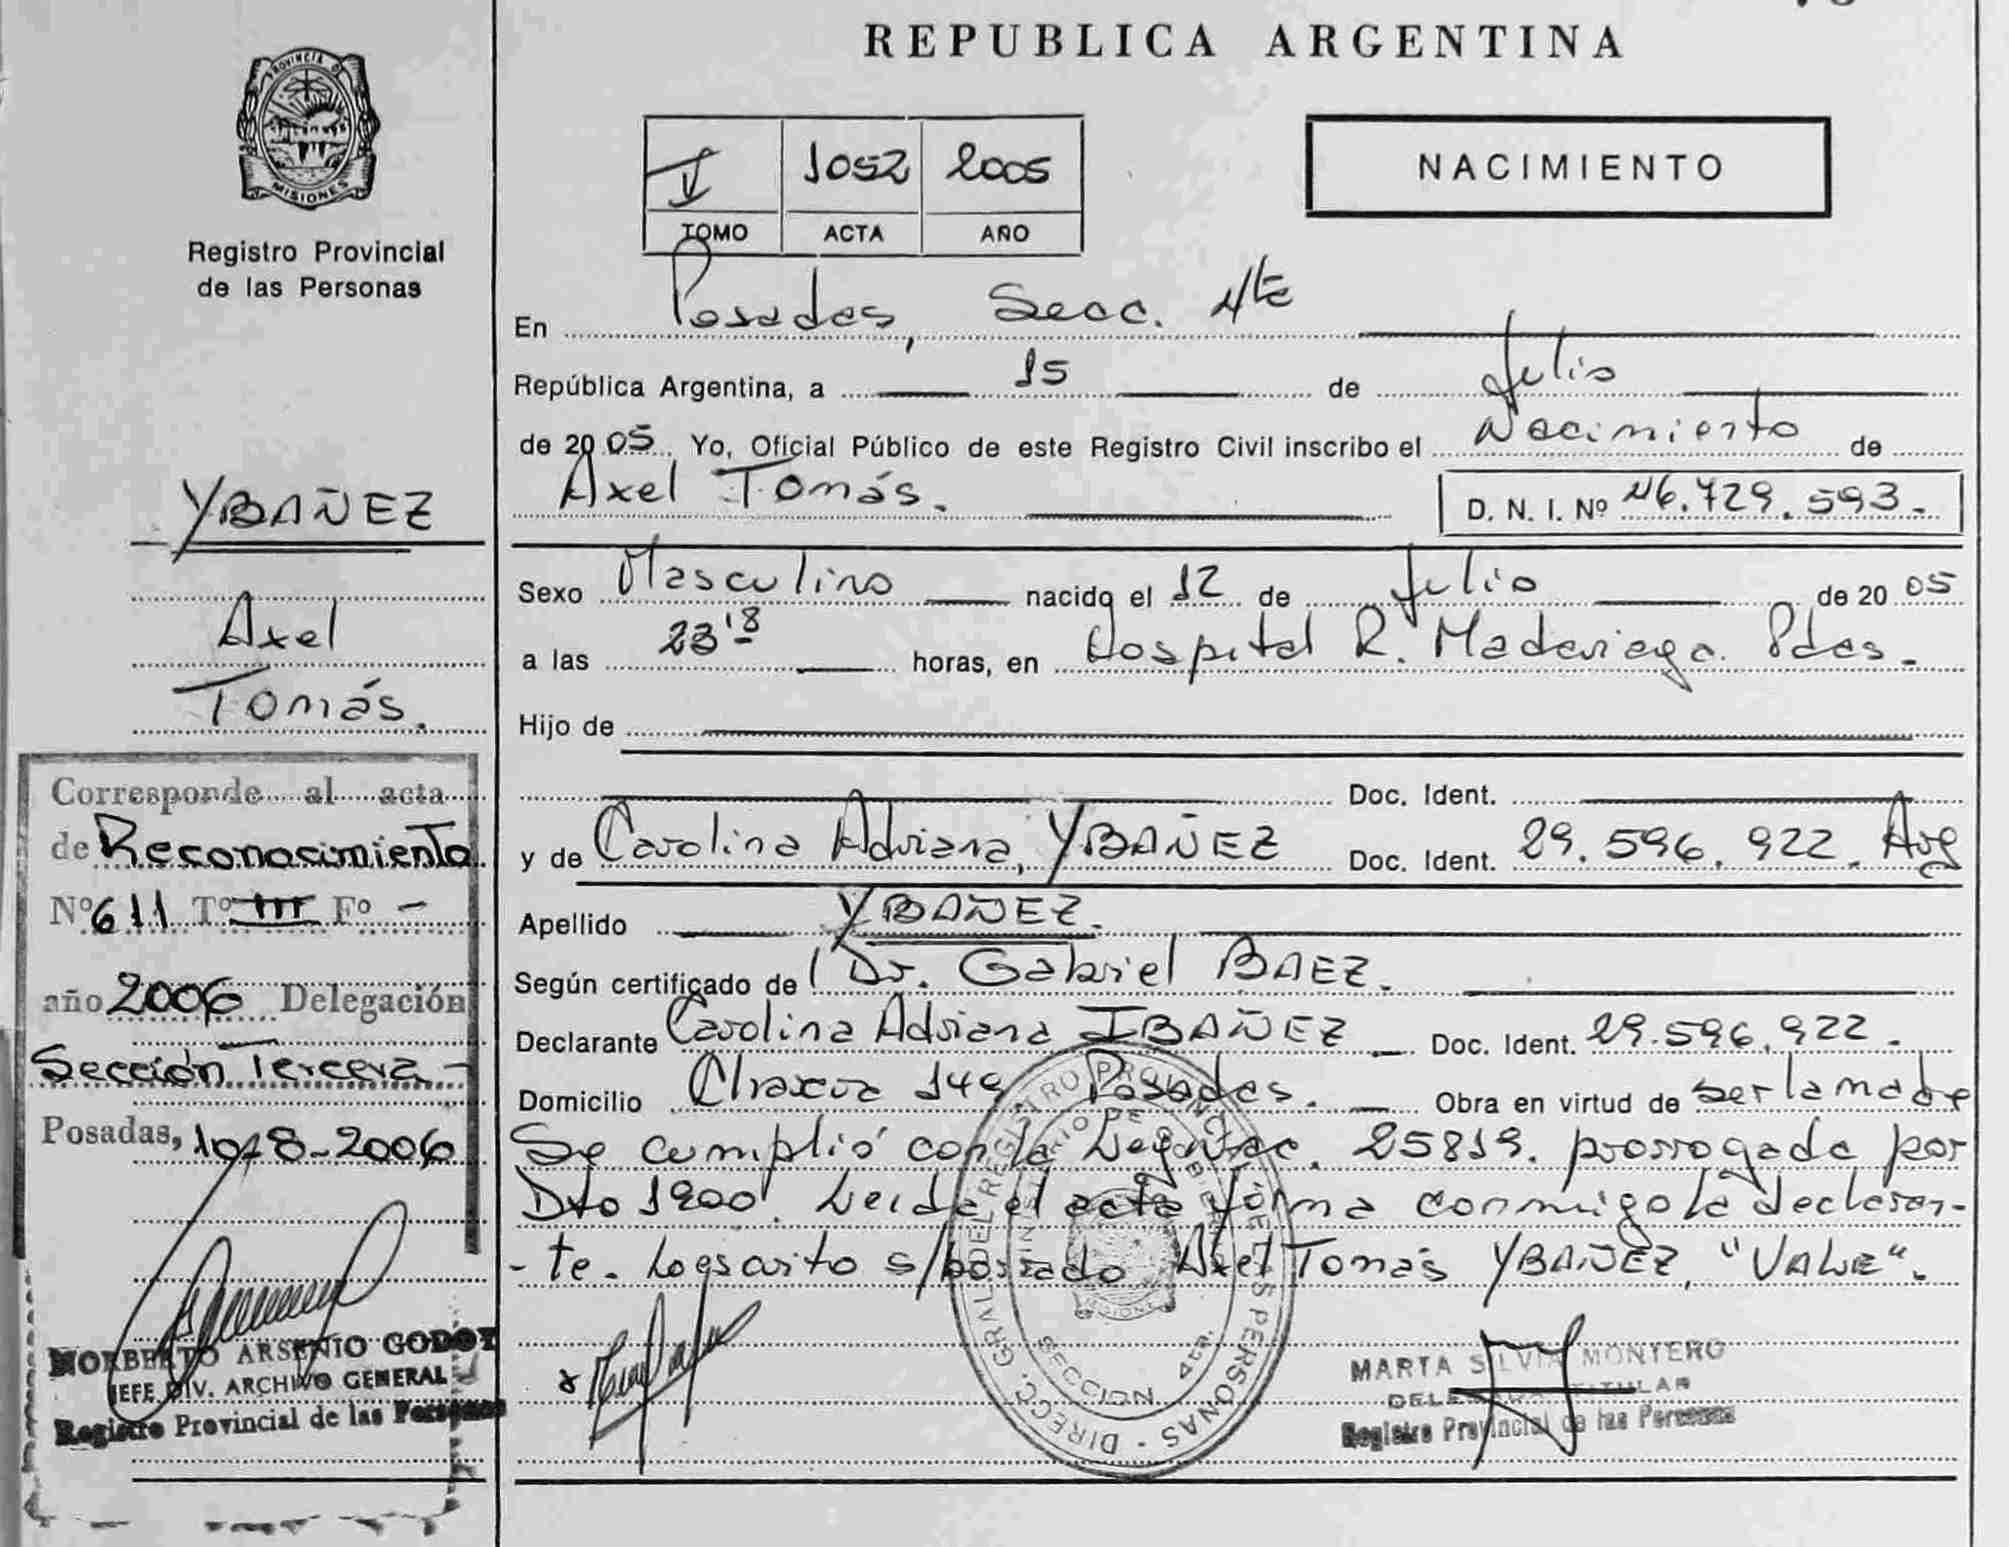 REPUBLICA ARGENTINA
PROVINCIA DE
MISIONES
Registro Provincial
de las Personas
I 1052 2005
TOMO ACTA AÑO
NACIMIENTO
En Posadas, Secc. 4ta
República Argentina, a 15 de Julio
de 2005 Yo, Oficial Público de este Registro Civil inscribo el Nacimiento de
Axel Tomás. D. N. I. Nº 46.729.593.-
Sexo Masculino nacido el 12 de Julio de 2005
a las 23'18 horas, en Hospital R. Madariaga. Pdas.-
Hijo de
Doc. Ident.
y de Carolina Adriana, YBAÑEZ Doc. Ident. 29.596.922. Arg
Apellido YBAÑEZ.
Según certificado de Dr. Gabriel BAEZ.
Declarante Carolina Adriana IBAÑEZ Doc. Ident. 29.596.922.
Domicilio 149 Posadas. Obra en virtud de ser la madre
Se cumplió con la Ley 25819. prorrogada por
Dto 1900. Leída el acta firma conmigo la declaran-
-te. Lo escrito s/borrado Axel Tomás YBAÑEZ, "VALE".
MARTA SILVIA MONTERO
DELEGADA TITULAR
Registro Provincial de las Personas
DIRECC. GRAL DEL REGISTRO PROVINCIAL DE LAS PERSONAS
MINISTERIO DE GOBIERNO
MISIONES
SECCION 4ta.
YBAÑEZ
Axel
Tomás.
Corresponde al acta
de Reconocimiento
Nº 611 Tº III Fº -
año 2006 Delegación
Sección Tercera -
Posadas, 10-8-2006
NORBERTO ARSENIO GODOY
JEFE DIV. ARCHIVO GENERAL
Registro Provincial de las Personas